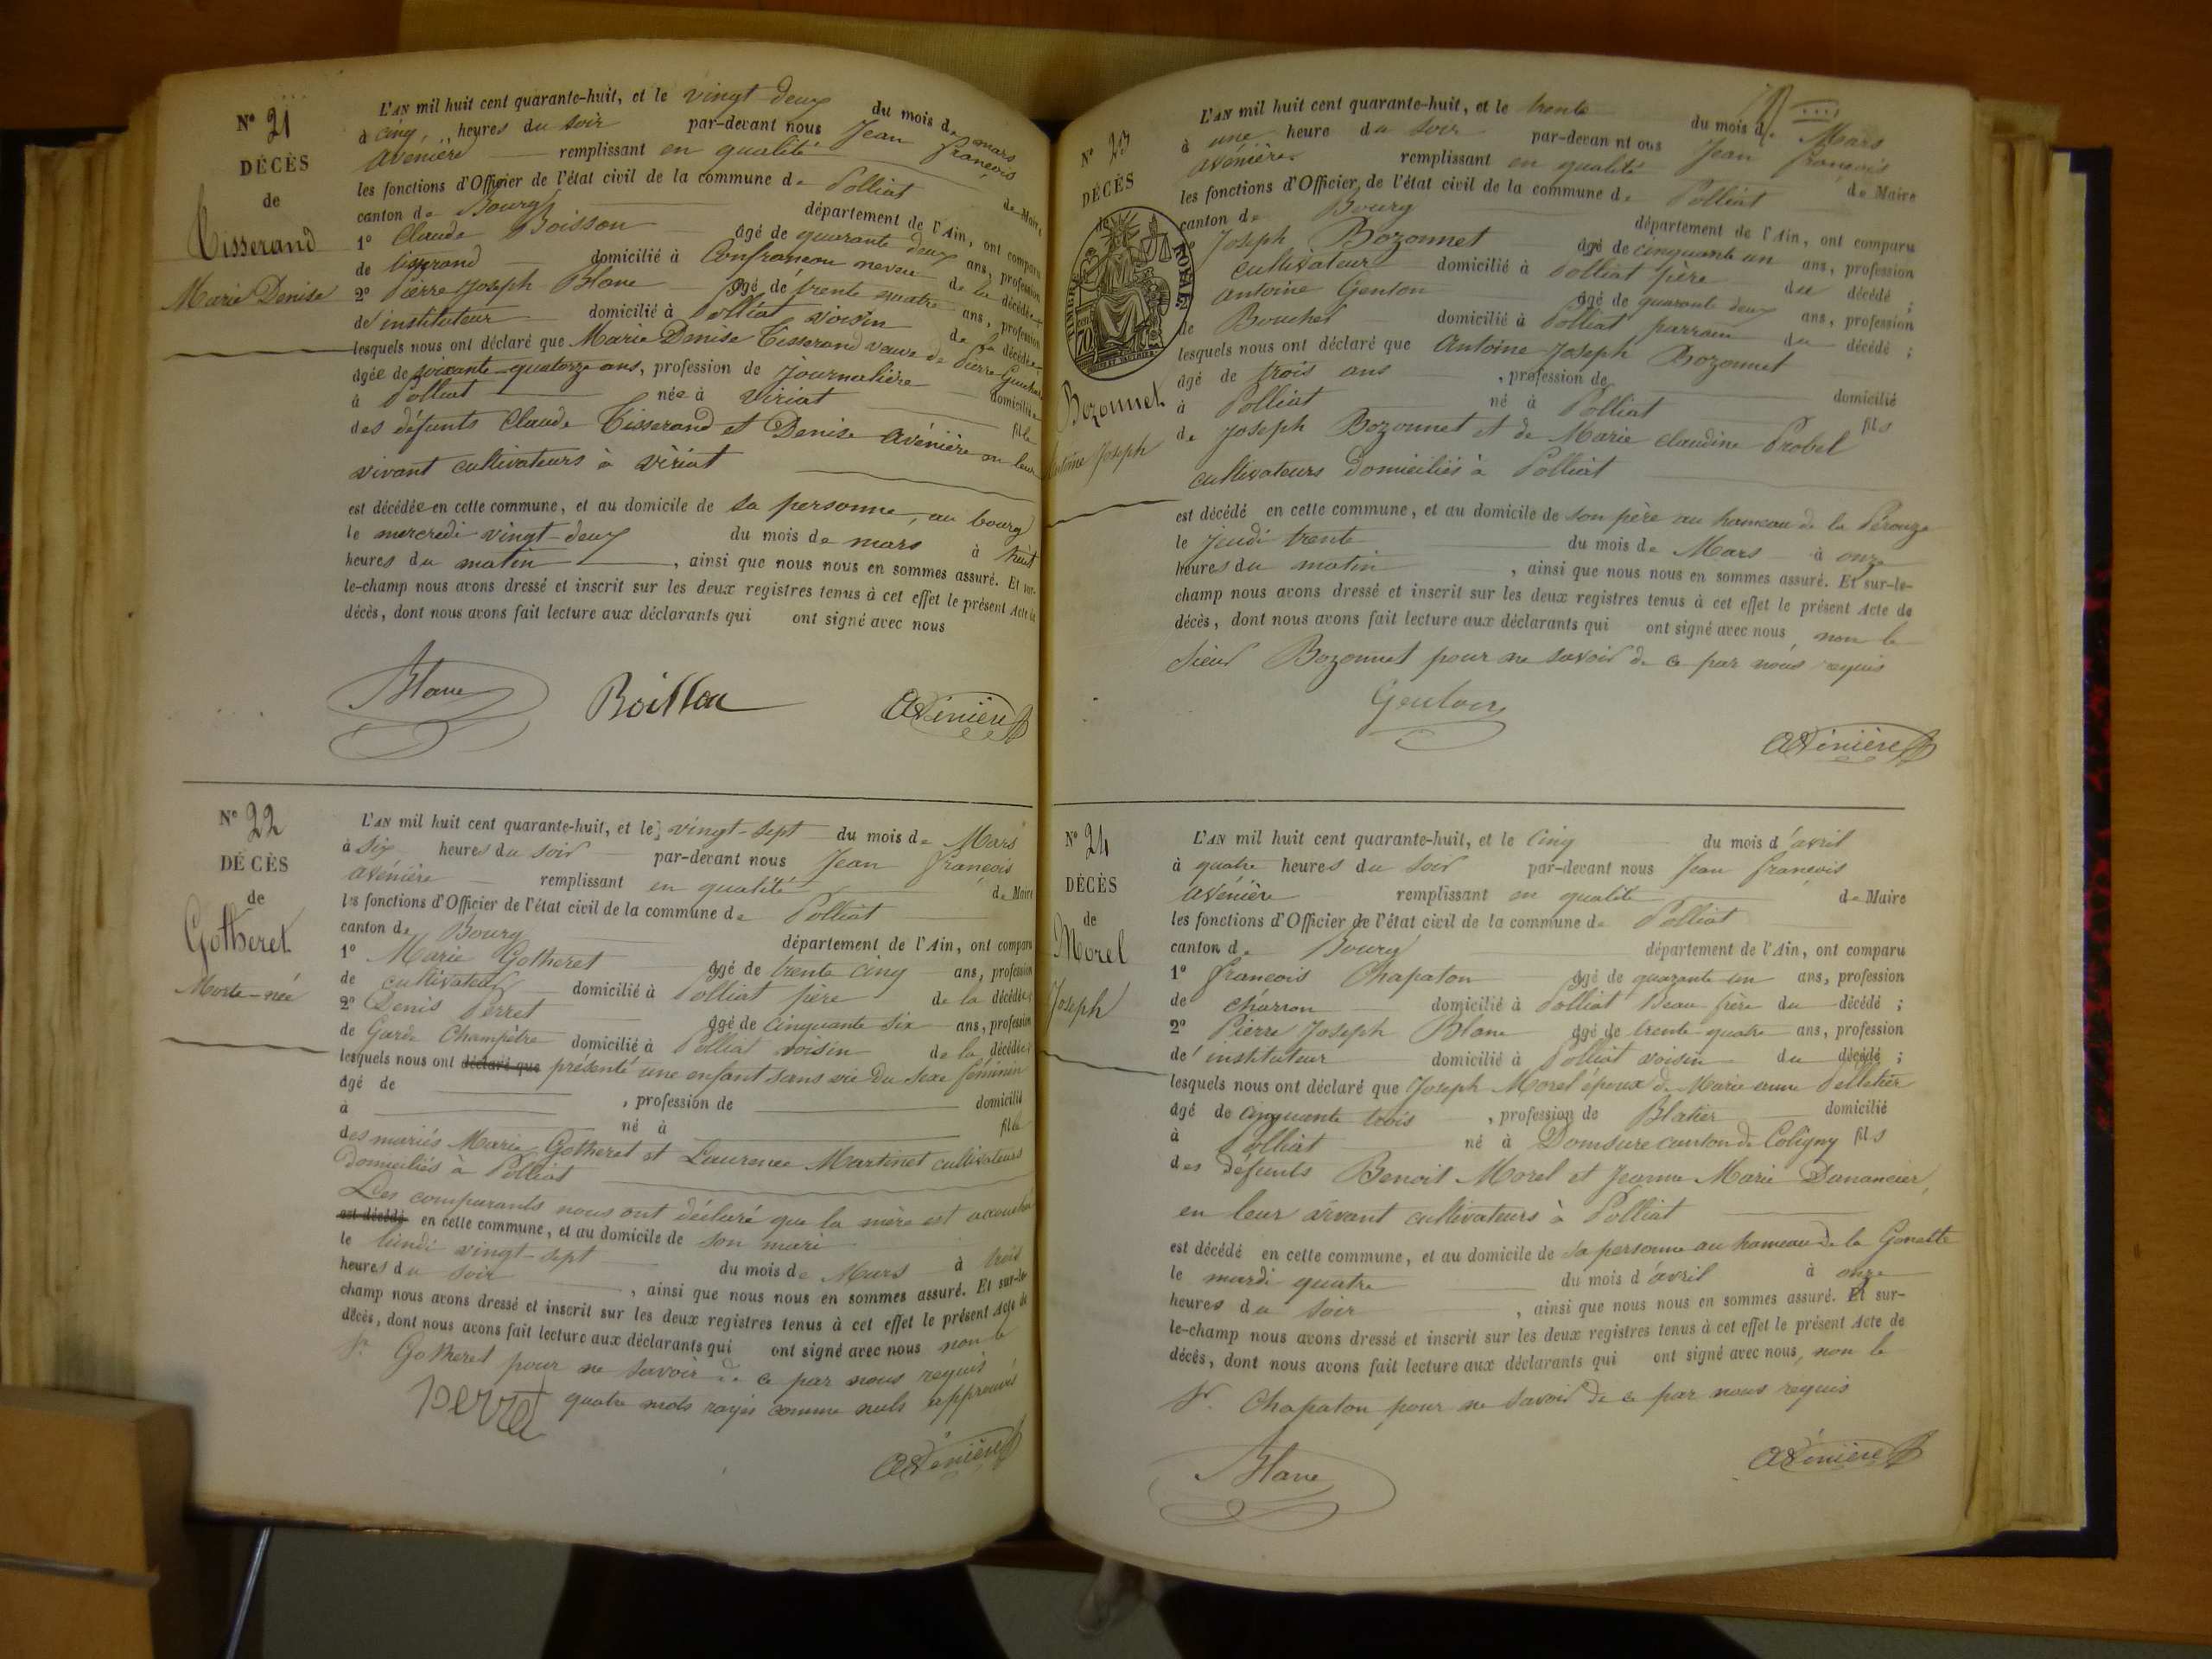 N° 21
DÉCÈS
de
Tisserand
Marie Denise
L'AN mil huit cent quarante-huit, et le vingt deux du mois de mars
à cinq, heures du soir par-devant nous Jean françois
avénière remplissant en qualité de Maire
les fonctions d'Officier de l'état civil de la commune de Polliat
canton de Bourg département de l'Ain, ont comparu
1° Claude Boisson âgé de quarante deux ans, profession
de tisserand domicilié à Confrancon neveu de la décédée
2° Pierre Joseph Blanc âgé de trente quatre ans, profession
de instituteur domicilié à Polliat voisin de la décédée
lesquels nous ont déclaré que Marie Denise Tisserand veuve de Pierre
âgée de soixante-quatorze ans, profession de journalière domiciliée
à Polliat née à Viriat fille
des défunts Claude Tisserand et Denise avénière en leur
vivant cultivateurs à Viriat
est décédée en cette commune, et au domicile de sa personne, au bourg
le mercredi vingt-deux du mois de mars à huit
heures du matin , ainsi que nous nous en sommes assuré. Et sur-
le-champ nous avons dressé et inscrit sur les deux registres tenus à cet effet le présent Acte de
décès, dont nous avons fait lecture aux déclarants qui ont signé avec nous
Blanc Boisson Avénière
N° 22
DÉCÈS
de
Gotheret
Morte-née
L'AN mil huit cent quarante-huit, et le vingt-sept du mois de Mars
à six heures du soir par-devant nous Jean françois
avénière remplissant en qualité de Maire
les fonctions d'Officier de l'état civil de la commune de Polliat
canton de Bourg département de l'Ain, ont comparu
1° Marie Gotheret âgé de trente cinq ans, profession
de cultivateur domicilié à Polliat père de la décédée
2° Denis Perret âgé de cinquante six ans, profession
de Garde Champêtre domicilié à Polliat voisin de la décédée
lesquels nous ont déclaré que présenté une enfant sans vie du sexe féminin
âgé de , profession de domicilié
à né à fille
des mariés Marie Gotheret et Laurence Martinet cultivateurs
domiciliés à Polliat
Les comparants nous ont déclaré que la mère est accouchée
est décédé en cette commune, et au domicile de son mari
le lundi vingt-sept du mois de Mars à trois
heures du soir , ainsi que nous nous en sommes assuré. Et sur-le-
champ nous avons dressé et inscrit sur les deux registres tenus à cet effet le présent Acte de
décès, dont nous avons fait lecture aux déclarants qui ont signé avec nous non le
Sr. Gotheret pour ne savoir de ce par nous requis
quatre mots rayés comme nuls approuvés
perret
Avénière
N° 23
DÉCÈS
de
TIMBRE ROYAL
70
Bozonnet
Antoine Joseph
L'AN mil huit cent quarante-huit, et le trente du mois de Mars
à une heure du soir par-devant nous Jean françois
avénière remplissant en qualité de Maire
les fonctions d'Officier de l'état civil de la commune de Polliat
canton de Bourg département de l'Ain, ont comparu
Joseph Bozonnet âgé de cinquante un ans, profession
cultivateur domicilié à Polliat père du décédé ;
antoine Genton âgé de quarante deux ans, profession
de Boucher domicilié à Polliat parrain du décédé ;
lesquels nous ont déclaré que Antoine Joseph Bozonnet
âgé de trois ans , profession de domicilié
à Polliat né à Polliat fils
de Joseph Bozonnet et de Marie claudine Probel
cultivateurs domiciliés à Polliat
est décédé en cette commune, et au domicile de son père au hameau de la Pérouze
le jeudi trente du mois de Mars à onze
heures du matin , ainsi que nous nous en sommes assuré. Et sur-le-
champ nous avons dressé et inscrit sur les deux registres tenus à cet effet le présent Acte de
décès, dont nous avons fait lecture aux déclarants qui ont signé avec nous non le
sieur Bozonnet pour ne savoir de ce par nous requis
Genton
Avénière
N° 24
DÉCÈS
de
Morel
Joseph
L'AN mil huit cent quarante-huit, et le cinq du mois d'avril
à quatre heures du soir par-devant nous Jean françois
avénière remplissant en qualité de Maire
les fonctions d'Officier de l'état civil de la commune de Polliat
canton de Bourg département de l'Ain, ont comparu
1° françois Chapaton âgé de quarante un ans, profession
de charron domicilié à Polliat beau frère du décédé ;
2° Pierre Joseph Blanc âgé de trente-quatre ans, profession
de instituteur domicilié à Polliat voisin du décédé ;
lesquels nous ont déclaré que Joseph Morel époux de Marie anne Pelletier
âgé de cinquante trois , profession de Blatier domicilié
à Polliat né à Domsure canton de Coligny fils
des défunts Benoit Morel et Jeanne Marie Danancier,
en leur vivant cultivateurs à Polliat
est décédé en cette commune, et au domicile de sa personne au hameau de la Genette
le mardi quatre du mois d'avril à onze
heures du soir , ainsi que nous nous en sommes assuré. Et sur-
le-champ nous avons dressé et inscrit sur les deux registres tenus à cet effet le présent Acte de
décès, dont nous avons fait lecture aux déclarants qui ont signé avec nous, non le
Sr. Chapaton pour ne savoir de ce par nous requis
Blanc
Avénière